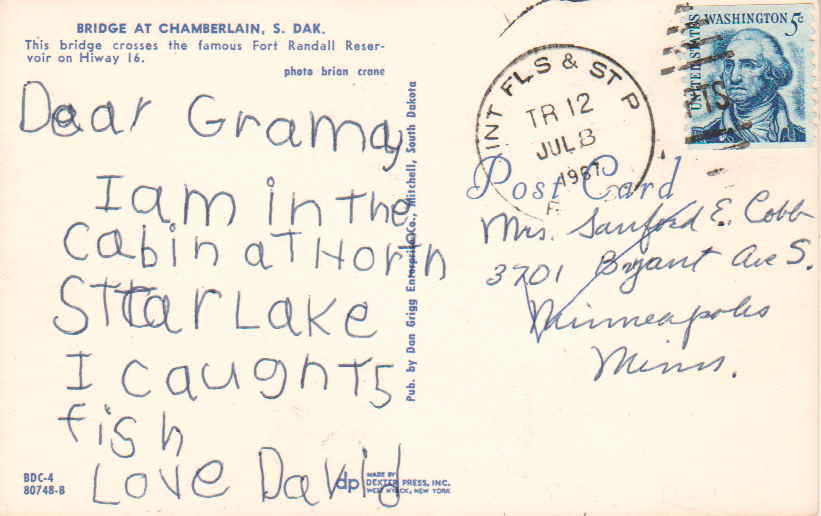 BRIDGE AT CHAMBERLAIN, S. DAK.
This bridge crosses the famous Fort Randall Reser-
voir on Hiway 16.
photo brian crane
Dear Gramay
I am in the
cabin aT Horn
STTar LaKe
I caughT 5
fish
Love David
BDC-4
80748-B
Pub. by Dan Grigg Enterprise Co., Mitchell, South Dakota
dp
MADE BY
DEXTER PRESS, INC.
WEST NYACK, NEW YORK
INT FLS & ST P
TR 12
JUL 3
1967
UNITED STATES
WASHINGTON 5c
TS
Post Card
Mrs. Sanford E. Cobb
3701 Bryant Ave S.
Minneapolis
Minn.